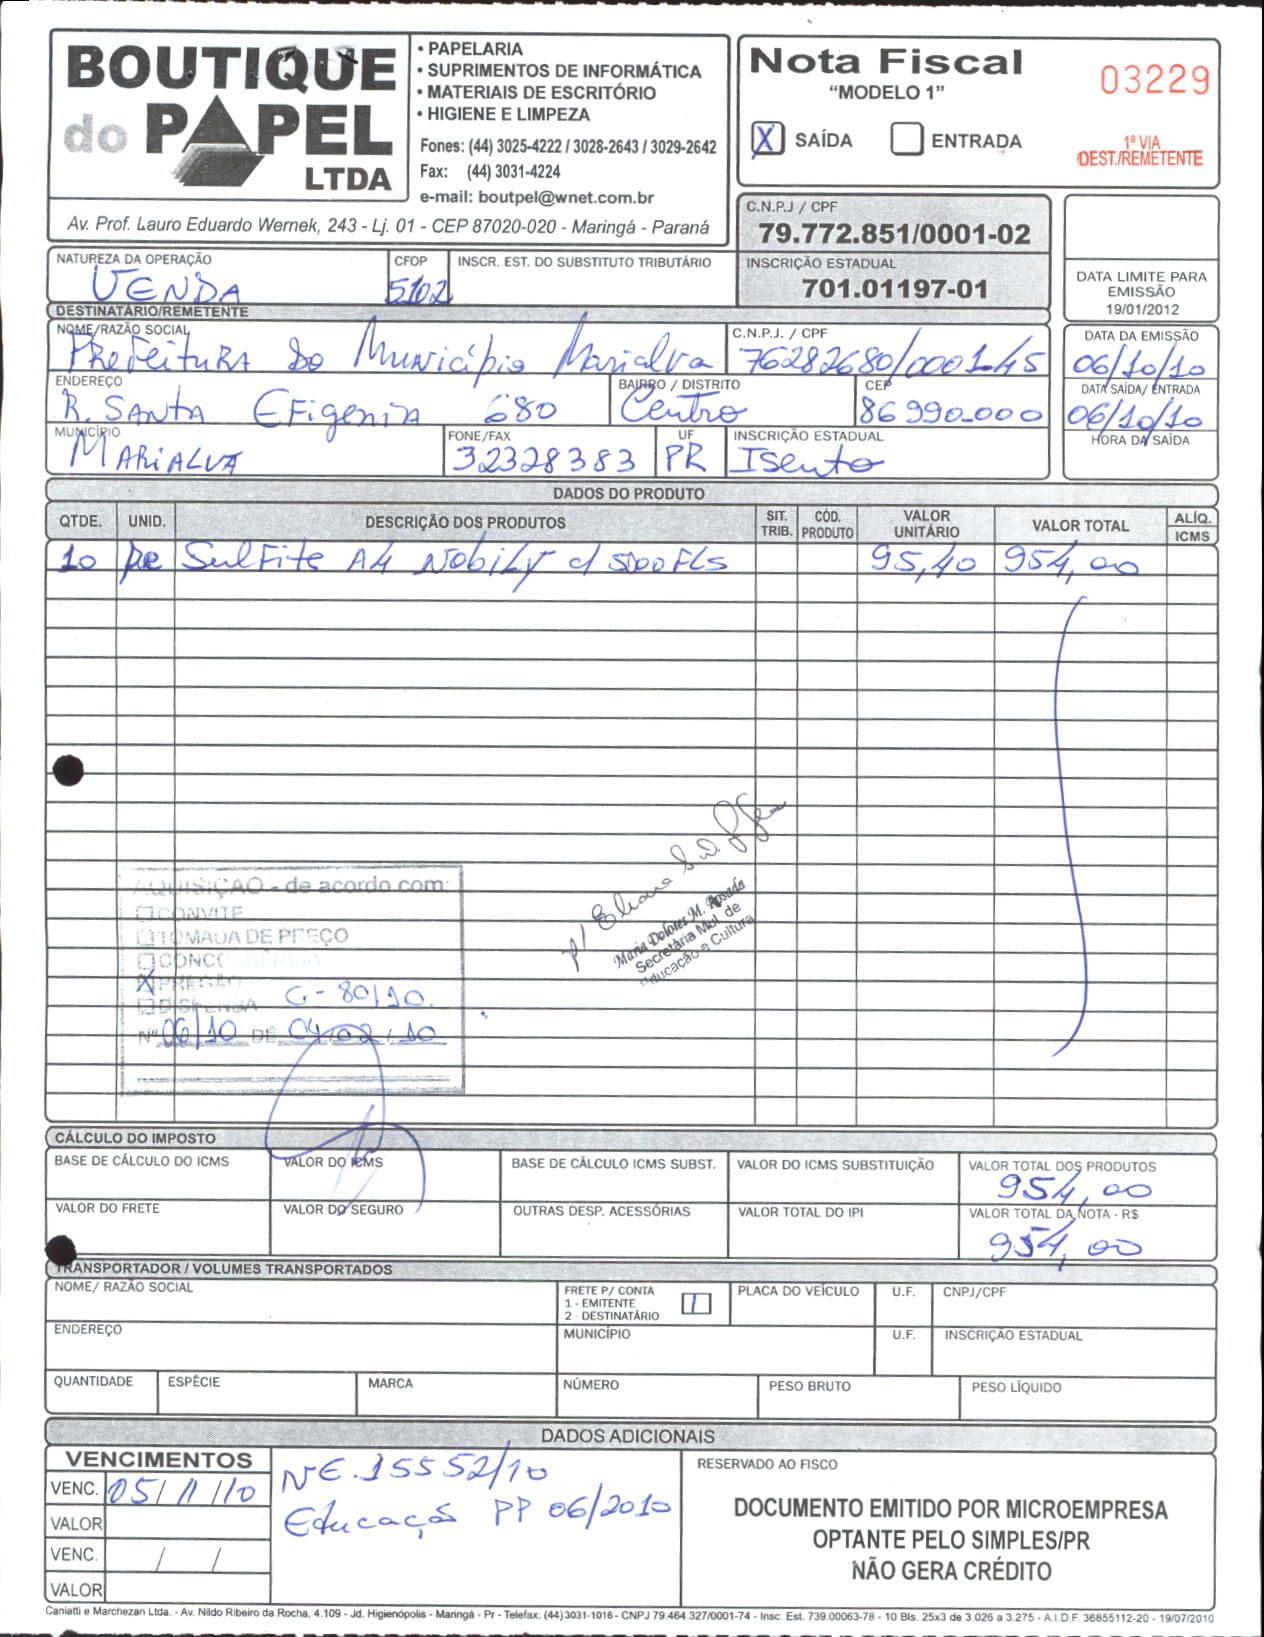 BOUTIQUE
do PAPEL
LTDA
• PAPELARIA
• SUPRIMENTOS DE INFORMÁTICA
• MATERIAIS DE ESCRITÓRIO
• HIGIENE E LIMPEZA
Fones: (44) 3025-4222 / 3028-2643 / 3029-2642
Fax: (44) 3031-4224
e-mail: boutpel@wnet.com.br
Av. Prof. Lauro Eduardo Wernek, 243 - Lj. 01 - CEP 87020-020 - Maringá - Paraná
Nota Fiscal
“MODELO 1”
03229
X SAÍDA ENTRADA
1ª VIA
DEST./REMETENTE
C.N.P.J / CPF
79.772.851/0001-02
INSCRIÇÃO ESTADUAL
701.01197-01
DATA LIMITE PARA
EMISSÃO
19/01/2012
NATUREZA DA OPERAÇÃO CFOP INSCR. EST. DO SUBSTITUTO TRIBUTÁRIO
VENDA 5102
DESTINATÁRIO/REMETENTE
NOME/RAZÃO SOCIAL C.N.P.J. / CPF DATA DA EMISSÃO
Prefeitura do Município Marialva 76282680/0001-45 06/10/10
ENDEREÇO BAIRRO / DISTRITO CEP DATA SAÍDA/ ENTRADA
R. Santa Efigenia 680 Centro 86990-000 06/10/10
MUNICÍPIO FONE/FAX UF INSCRIÇÃO ESTADUAL HORA DA SAÍDA
Marialva 32328383 PR Isento
DADOS DO PRODUTO
QTDE. UNID. DESCRIÇÃO DOS PRODUTOS SIT. TRIB. CÓD. PRODUTO VALOR UNITÁRIO VALOR TOTAL ALÍQ. ICMS
10 Sulfite A4 Nobily c/ 5000 Fls 95,40 954,00
p/ Eliana
Maria Dolores M.
Secretária Mul. de
Educação e Cultura
AQUISIÇÃO - de acordo com:
CONVITE
TOMADA DE PREÇO
CONCORRÊNCIA
X PREGÃO
DISPENSA G-80/10.
Nº 06/10 DE 04/02/10
CÁLCULO DO IMPOSTO
BASE DE CÁLCULO DO ICMS VALOR DO ICMS BASE DE CÁLCULO ICMS SUBST. VALOR DO ICMS SUBSTITUIÇÃO VALOR TOTAL DOS PRODUTOS
954,00
VALOR DO FRETE VALOR DO SEGURO OUTRAS DESP. ACESSÓRIAS VALOR TOTAL DO IPI VALOR TOTAL DA NOTA - R$
954,00
TRANSPORTADOR / VOLUMES TRANSPORTADOS
NOME/ RAZÃO SOCIAL FRETE P/ CONTA PLACA DO VEÍCULO U.F. CNPJ/CPF
1 - EMITENTE
2 - DESTINATÁRIO 1
ENDEREÇO MUNICÍPIO U.F. INSCRIÇÃO ESTADUAL
QUANTIDADE ESPÉCIE MARCA NÚMERO PESO BRUTO PESO LÍQUIDO
DADOS ADICIONAIS
VENCIMENTOS
VENC. 05/11/10
VALOR
VENC. / /
VALOR
NE. 15552/10
Educação PP 06/2010
RESERVADO AO FISCO
DOCUMENTO EMITIDO POR MICROEMPRESA
OPTANTE PELO SIMPLES/PR
NÃO GERA CRÉDITO
Caniatti e Marchezan Ltda. - Av. Nildo Ribeiro da Rocha, 4.109 - Jd. Higienópolis - Maringá - Pr - Telefax: (44) 3031-1016 - CNPJ 79.464.327/0001-74 - Insc. Est. 739.00063-78 - 10 Bls. 25x3 de 3.026 a 3.275 - A.I.D.F. 36855112-20 - 19/07/2010